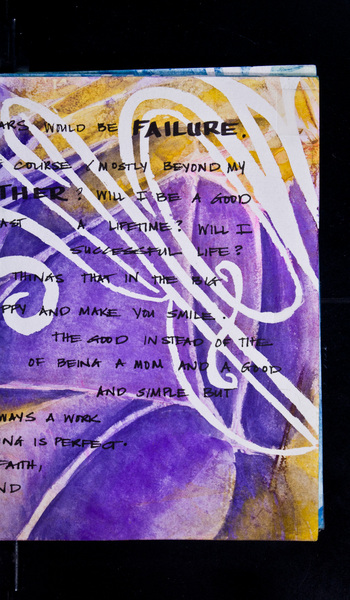 ARS WOULD BE FAILURE.
COURSE / MOSTLY BEYOND MY
THER? WILL I BE A GOOD
AST A LIFETIME? WILL I
SUCCESSFUL LIFE?
THINGS THAT IN THE BIG
PPY AND MAKE YOU SMILE.
THE GOOD INSTEAD OF THE
OF BEING A MOM AND A GOOD
AND SIMPLE BUT
WAYS A WORK
ING IS PERFECT.
FAITH,
ND